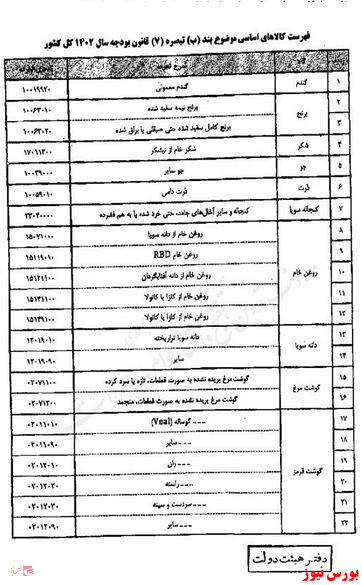 فهرست کالاهای اساسی موضوع بند (ب) تبصره (۷) قانون بودجه سال ۱۴۰۲ کل کشور
کالا
شرح تعرفه
۱ گندم گندم معمولی ۱۰۰۱۹۹۲۰
۲ برنج برنج نیمه سفید شده ۱۰۰۶۳۰۱۰
۳ برنج کامل سفید شده حتی صیقلی یا براق شده ۱۰۰۶۳۰۲۰
۴ شکر شکر خام از نیشکر ۱۷۰۱۱۳۰۰
۵ جو جو سایر ۱۰۰۳۹۰۰۰
۶ ذرت ذرت دامی ۱۰۰۵۹۰۱۰
۷ کنجاله سویا کنجاله و سایر آخال‌های جامد، حتی خرد شده یا به هم فشرده ۲۳۰۴۰۰۰۰
۸ روغن خام روغن خام از دانه سویا ۱۵۰۷۱۰۰۰
۹ روغن خام RBD ۱۵۱۱۹۰۱۰
۱۰ روغن خام از دانه آفتابگردان ۱۵۱۲۱۱۰۰
۱۱ روغن خام از کلزا یا کانولا ۱۵۱۴۱۱۰۰
۱۲ روغن خام از کلزا یا کانولا ۱۵۱۴۹۱۰۰
۱۳ دانه سویا دانه سویا تراریخته ۱۲۰۱۹۰۱۰
۱۴ سایر ۱۲۰۱۹۰۹۰
۱۵ گوشت مرغ گوشت مرغ بریده نشده به صورت قطعات، تازه یا سرد کرده ۰۲۰۷۱۱۰۰
۱۶ گوشت مرغ بریده نشده به صورت قطعات، منجمد ۰۲۰۷۱۲۰۰
۱۷ گوشت قرمز ---گوساله (Veal) ۰۲۰۱۱۰۱۰
۱۸ ---سایر ۰۲۰۱۱۰۹۰
۱۹ ---ران ۰۲۰۱۲۰۱۰
۲۰ ---راسته ۰۲۰۱۲۰۲۰
۲۱ ---سردست و سینه ۰۲۰۱۲۰۳۰
۲۲ ---سایر ۰۲۰۱۲۰۹۰
دفتر هیئت دولت
بورس نیوز